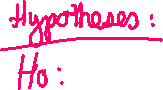 Hypotheses:
Ho: